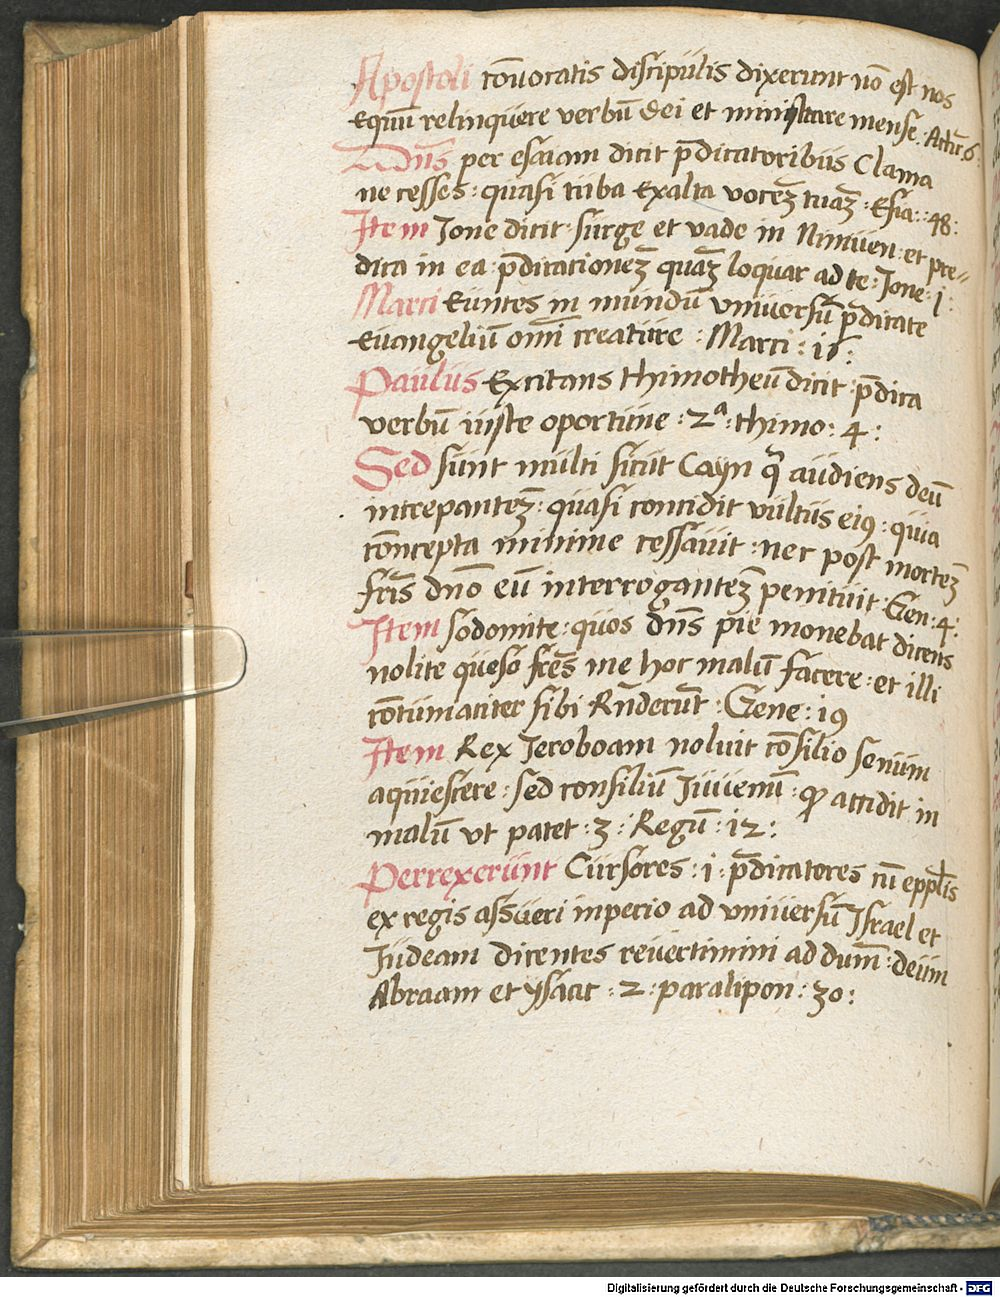 Apostoli cōuocatis discipulis dixerunt nō est nos
equū relinquere verbū dei et ministrare mense. Actū. 6.
Dn̄s per esaiam dicit p̄dicatoribus Clama
ne cesses: quasi tuba exalta vocēꝫ tuāꝫ: Esia: 48:
Item Jone dicit surge et vade in Niniuen: et pre=
dica in ea: p̄dicationēꝫ quāꝫ loquar ad te: Jone: j:
Marci Euntes in mundū vniuersū p̄dicate
Euangeliū om̄i creature: Marci:
Paulus Excitans thimotheū dicit: p̄dica
verbū iuste oportune: 2ª: thimo: 4:
Sed sunt multi sicut Cayn q̄ audiens deū
increpantēꝫ: quasi concidit vultus eiꝰ: quia
cōncepta minime cessauit: nec post mortēꝫ
fr̄is dn̄o eū interrogantēꝫ penituit: Gen: 4:
Item sodomite: quos dn̄s pie monebat dicens
nolite queso fr̄es me hoc malū facere: et illi
cōtumaciter sibi Rn̄derūt: Gene: 19
Item Rex Jeroboam noluit cōsilio senum
aquiescere: sed consiliū Juuenū: qꝫ accidit in
malū vt patet: 3: Regū: 12:
Perrexerunt Cursores: i: p̄dicatores cū epp̄lis
ex regis assueri inperio ad vniuersū Jsrael et
Judeam dicentes reuertimini ad dūm: deum
Abraam et ysacit: 2: paralipon: 30:
Digitalisierung gefördert durch die Deutsche Forschungsgemeinschaft - DFG